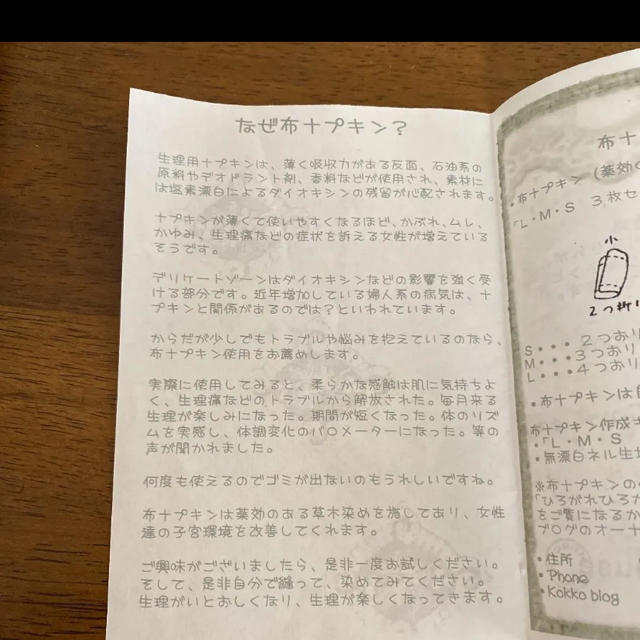 なぜ布ナプキン？
生理用ナプキンは、薄く吸収力がある反面、石油系の
原料やデオドラント剤、香料などが使用され、素材に
は塩素漂白によるダイオキシンの残留が心配されます。
ナプキンが薄くて使いやすくなるほど、かぶれ、ムレ、
かゆみ、生理痛などの症状を訴える女性が増えている
そうです。
デリケートゾーンはダイオキシンなどの影響を強く受
ける部分です。近年増加している婦人系の病気は、ナ
プキンと関係があるのでは？といわれています。
からだが少しでもトラブルや悩みを抱えているのなら、
布ナプキン使用をお薦めします。
実際に使用してみると、柔らかな感触は肌に気持ちよ
く、生理痛などのトラブルから解放された。毎月来る
生理が楽しみになった。期間が短くなった。体のリズ
ムを実感し、体調変化のバロメーターになった。等の
声が聞かれました。
何度も使えるのでゴミが出ないのもうれしいですね。
布ナプキンは薬効のある草木染めを施しており、女性
達の子宮環境を改善してくれます。
ご興味がございましたら、是非一度お試しください。
そして、是非自分で縫って、染めてみてください。
生理がいとおしくなり、生理が楽しくなってきます。
布ナ
・布ナプキン（薬効の
「L・M・S ３枚セ
小
2つ折り
S・・・２つおり
M・・・３つおり
L・・・４つおり
・布ナプキンは
布ナプキン作成キ
・「L・M・S
・無漂白ネル生地
※布ナプキンの
「ひろがれひろが
をご覧になるか
ブログのオーナ
・住所
・Phone
・Kokko blog